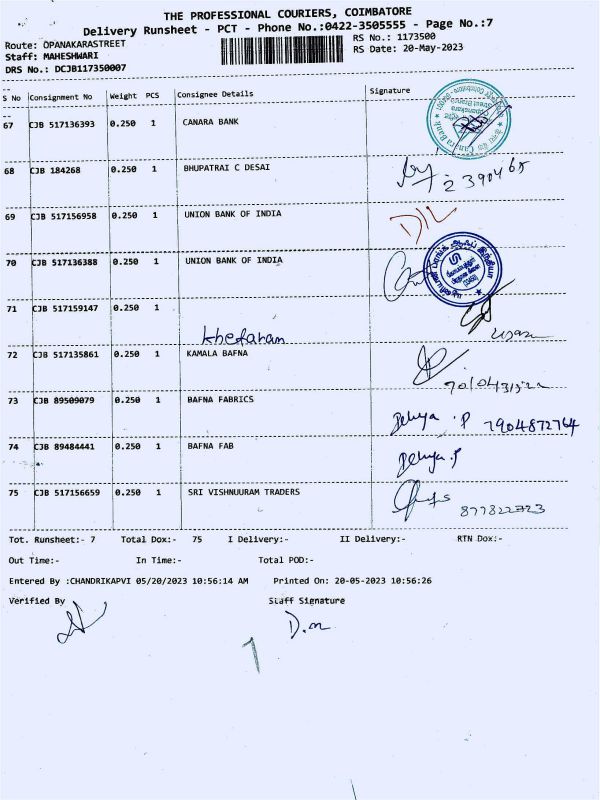 THE PROFESSIONAL COURIERS, COIMBATORE
Delivery Runsheet - PCT - Phone No.:0422-3505555 - Page No.:7
Route: OPANAKARASTREET RS No.: 1173500
Staff: MAHESHWARI RS Date: 20-May-2023
DRS No.: DCJB117350007
S No Consignment No Weight PCS Consignee Details Signature
67 CJB 517136393 0.250 1 CANARA BANK
68 CJB 184268 0.250 1 BHUPATRAI C DESAI
69 CJB 517156958 0.250 1 UNION BANK OF INDIA
D/L
70 CJB 517136388 0.250 1 UNION BANK OF INDIA
71 CJB 517159147 0.250 1
khetaram
72 CJB 517135861 0.250 1 KAMALA BAFNA
73 CJB 89509079 0.250 1 BAFNA FABRICS
P 7904872764
74 CJB 89484441 0.250 1 BAFNA FAB
75 CJB 517156659 0.250 1 SRI VISHNUURAM TRADERS
Tot. Runsheet:- 7 Total Dox:- 75 I Delivery:- II Delivery:- RTN Dox:-
Out Time:- In Time:- Total POD:-
Entered By :CHANDRIKAPVI 05/20/2023 10:56:14 AM Printed On: 20-05-2023 10:56:26
Verified By Staff Signature
D.m